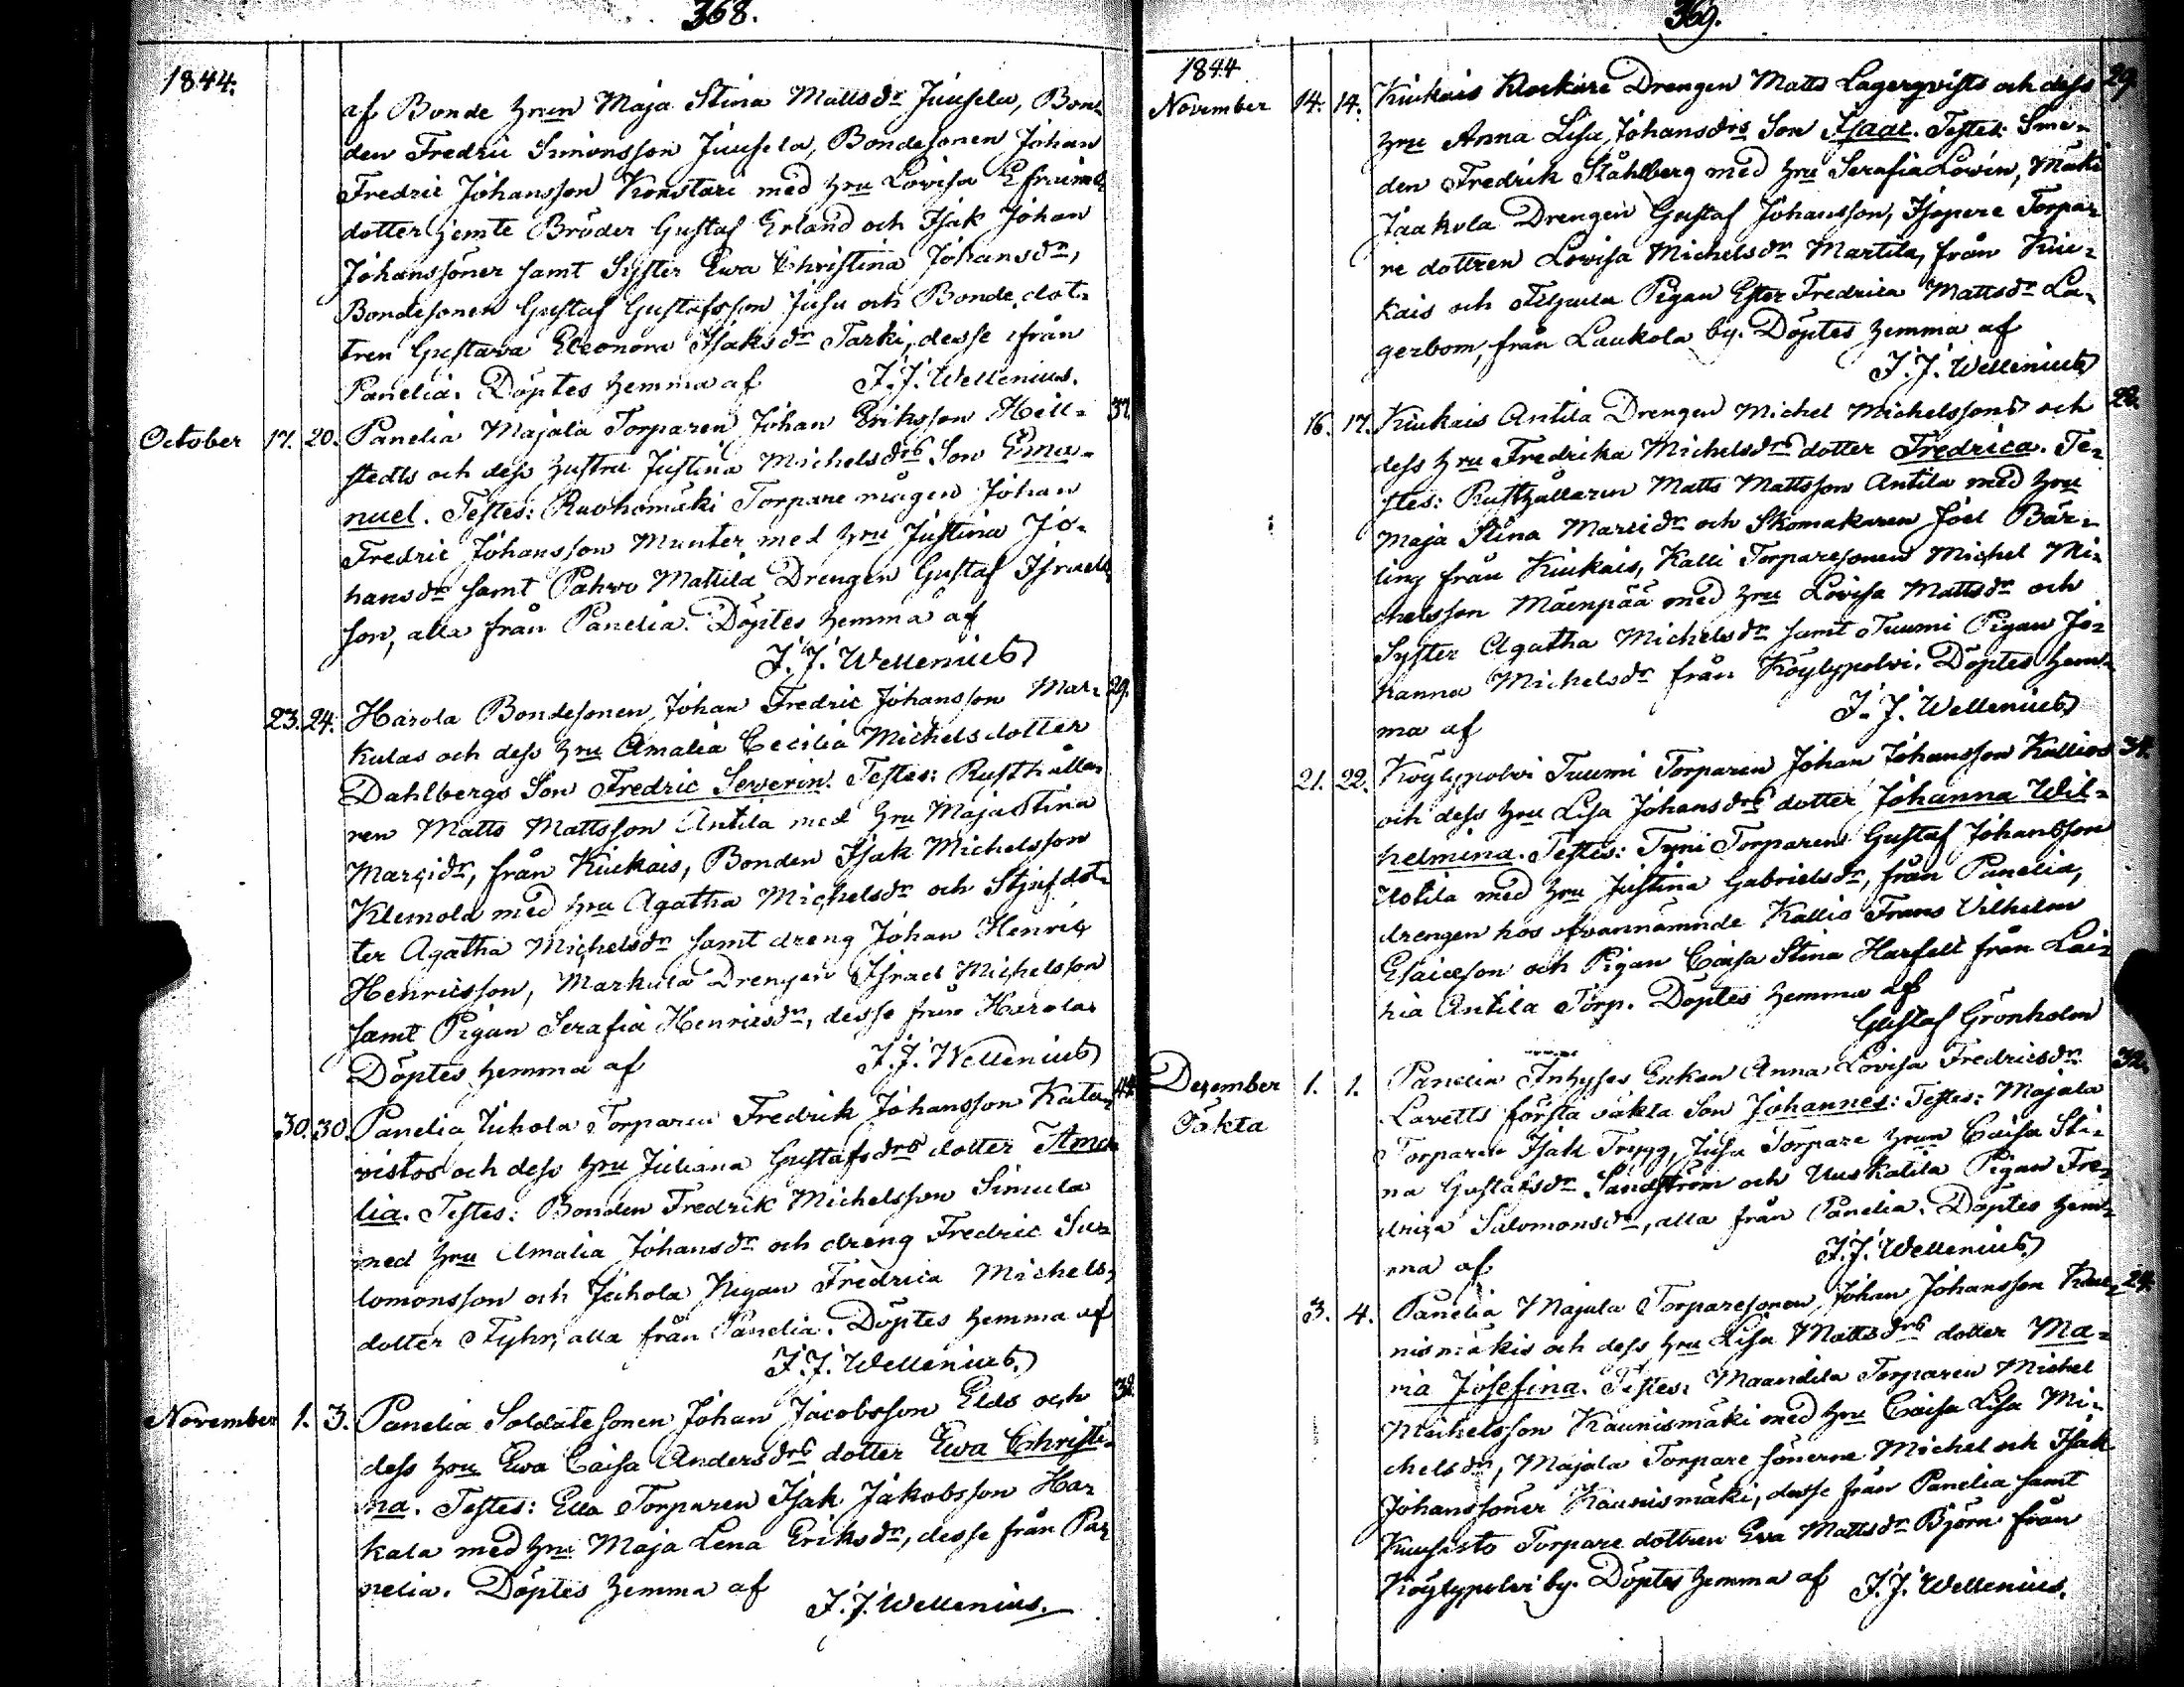 368.
1844.
af Bonde hrun Maja Stina Mattsdr Juusela, Bon-
den Fredric Simonsson Juusela, Bondesonen Johan
Fredric Johansson Konstari med hru Lovisa Efraims
dotter jemte Bröder Gustaf Erland och Isak Johan
Johanssöner samt Syster Ewa Christina Johansdr,
Bondesonen Gustaf Gustafsson Jusu och Bonde dot-
tren Gustava Eleonora Isaksdr Tarki, desse ifrån
Panelia. Döptes hemma af J. J. Wellenius.
October 17. 20. Panelia Majala Torparen Johan Eriksson Hell- 37.
stedts och dess hustru Justina Michelsdrs Son Ema-
nuel. Testes: Ruohomäki Torpare mågen Johan
Fredric Johansson Munter med hru Justina Jo-
hansdr samt Pahvo Mattila Drengen Gustaf Israels
son, alla från Panelia. Döptes hemma af
J. J. Wellenius
23. 24. Harola Bondesonen Johan Fredric Johansson Mar- 29.
kulas och dess hru Amalia Cecilia Michelsdotter
Dahlbergs Son Fredric Severin. Testes: Rusthålla-
ren Matts Mattsson Antila med hru Maja Stina
Marcidr, från Kiukais, Bonden Isak Michelsson
Klemola med hru Agatha Michelsdr och Stjufdot-
ter Agatha Michelsdr samt dreng Johan Henric
Henricsson, Markula Drengen Israel Michelsson
samt Pigan Serafia Henricsdr, desse från Harola
Döptes hemma af J. J. Wellenius
30. 30. Panelia Juhola Torparen Fredrik Johansson Kata- 44.
vistos och dess hru Juliana Gustafsdrs dotter Ama-
lia. Testes: Bonden Fredrik Michelsson Simula
med hru Amalia Johansdr och dreng Fredric Sa-
lomonsson och Juhola Pigan Fredrica Michels-
dotter Fyhr, alla från Panelia. Döptes hemma af
J. J. Wellenius.
November 1. 3. Panelia Soldatesonen Johan Jacobsson Elds och 38.
dess hru Ewa Caisa Andersdrs dotter Ewa Christi-
na. Testes: Ella Torparen Isak Jakobsson Har-
kala med hru Maja Lena Eriksdr, desse från Pa-
nelia. Döptes hemma af J. J. Wellenius.
369.
1844
November 14. 14. Kiukais Klockare Drengen Matts Lagerqvists och dess 29.
hru Anna Lisa Johansdrs Son Isaac. Testes: Sme-
den Fredrik Ståhlberg med hru Serafia Lovin, Mäki
Jaakola Drengen Gustaf Johansson, Isopere Torpa-
re dottren Lovisa Michelsdr Martila, från Kiu-
kais och Pigan Ester Fredrica Mattsdr La-
gerbom, från Laukola by. Döptes hemma af
J. J. Wellenius
16. 17. Kiukais Antila Drengen Michel Michelssons och 22.
dess hru Fredrika Michelsdrs dotter Fredrica. Te-
stes: Rusthållaren Matts Mattsson Antila med hru
Maja Stina Marcidr och Skomakaren Joel Bär-
ling från Kiukais, Kalli Torparesonen Michel Mi-
chelsson Mäenpää med hru Lovisa Mattsdr och
Syster Agatha Michelsdr samt Tuumi Pigan Jo-
hanna Michelsdr från Köylypolvi. Döptes hem-
ma af J. J. Wellenius
21. 22. Köylypolvi Tuumi Torparen Johan Johansson Kallios 34.
och dess hru Lisa Johansdrs dotter Johanna Wil-
helmina. Testes: Tyni Torparen Gustaf Johansson
Uotila med hru Justina Gabrielsdr, från Panelia,
drengen hos ofvannämnde Kallio Frans Vilhelm
Esaiæson och Pigan Caisa Stina Harfelt från Lai-
hia Antila Torp. Döptes hemma af
Gustaf Grönholm
Dezember 1. 1. Panelia Inhyses Enkan Anna Lovisa Fredricsdr 32.
Oäkta Laretts första oäkta Son Johannes: Testes: Majala
Torparen Isak Trygg, Jusu Torpare hrun Caisa Sti-
na Gustafsdr Sandström och Uuskatila Pigan Fre-
driça Salomonsdr, alla från Panelia. Döptes hem-
ma af J. J. Wellenius
3. 4. Panelia Majala Torparesonen Johan Johansson Kau- 24.
nismäkis och dess hru Lisa Mattsdrs dotter Ma-
ria Josefina. Testes: Maandila Torparen Michel
Michelsson Kaunismäki med hru Caisa Lisa Mi-
chelsdr, Majala Torpare sönerne Michel och Isak
Johanssöner Kaunismäki, desse från Panelia samt
Kuusisto Torpare dottren Eva Mattsdr Björn från
Köylypolvi by. Döptes hemma af J. J. Wellenius.